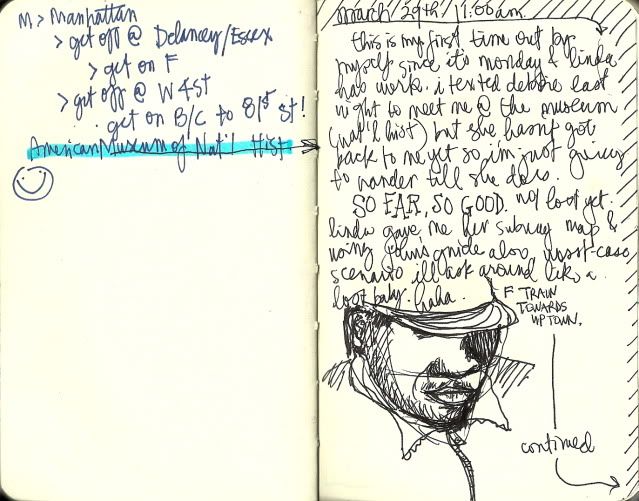 M > Manhattan
> get off @ Delancey/Essex
> get on F
> get off @ W4st
get on B/C to 81st st!
American Museum of Nat'l Hist
march/29th/11:00am
this is my first time out by
myself since it's monday & linda
has work. i texted debbie last
night to meet me @ the museum
(nat'l hist) but she hasn't got
back to me yet so i'm just going
to wander till she does.
SO FAR, SO GOOD. not lost yet.
linda gave me her subway map &
using guide also, worst-case
scenario i'll ask around like a
lost baby. haha.
F TRAIN
TOWARDS
UPTOWN.
continued